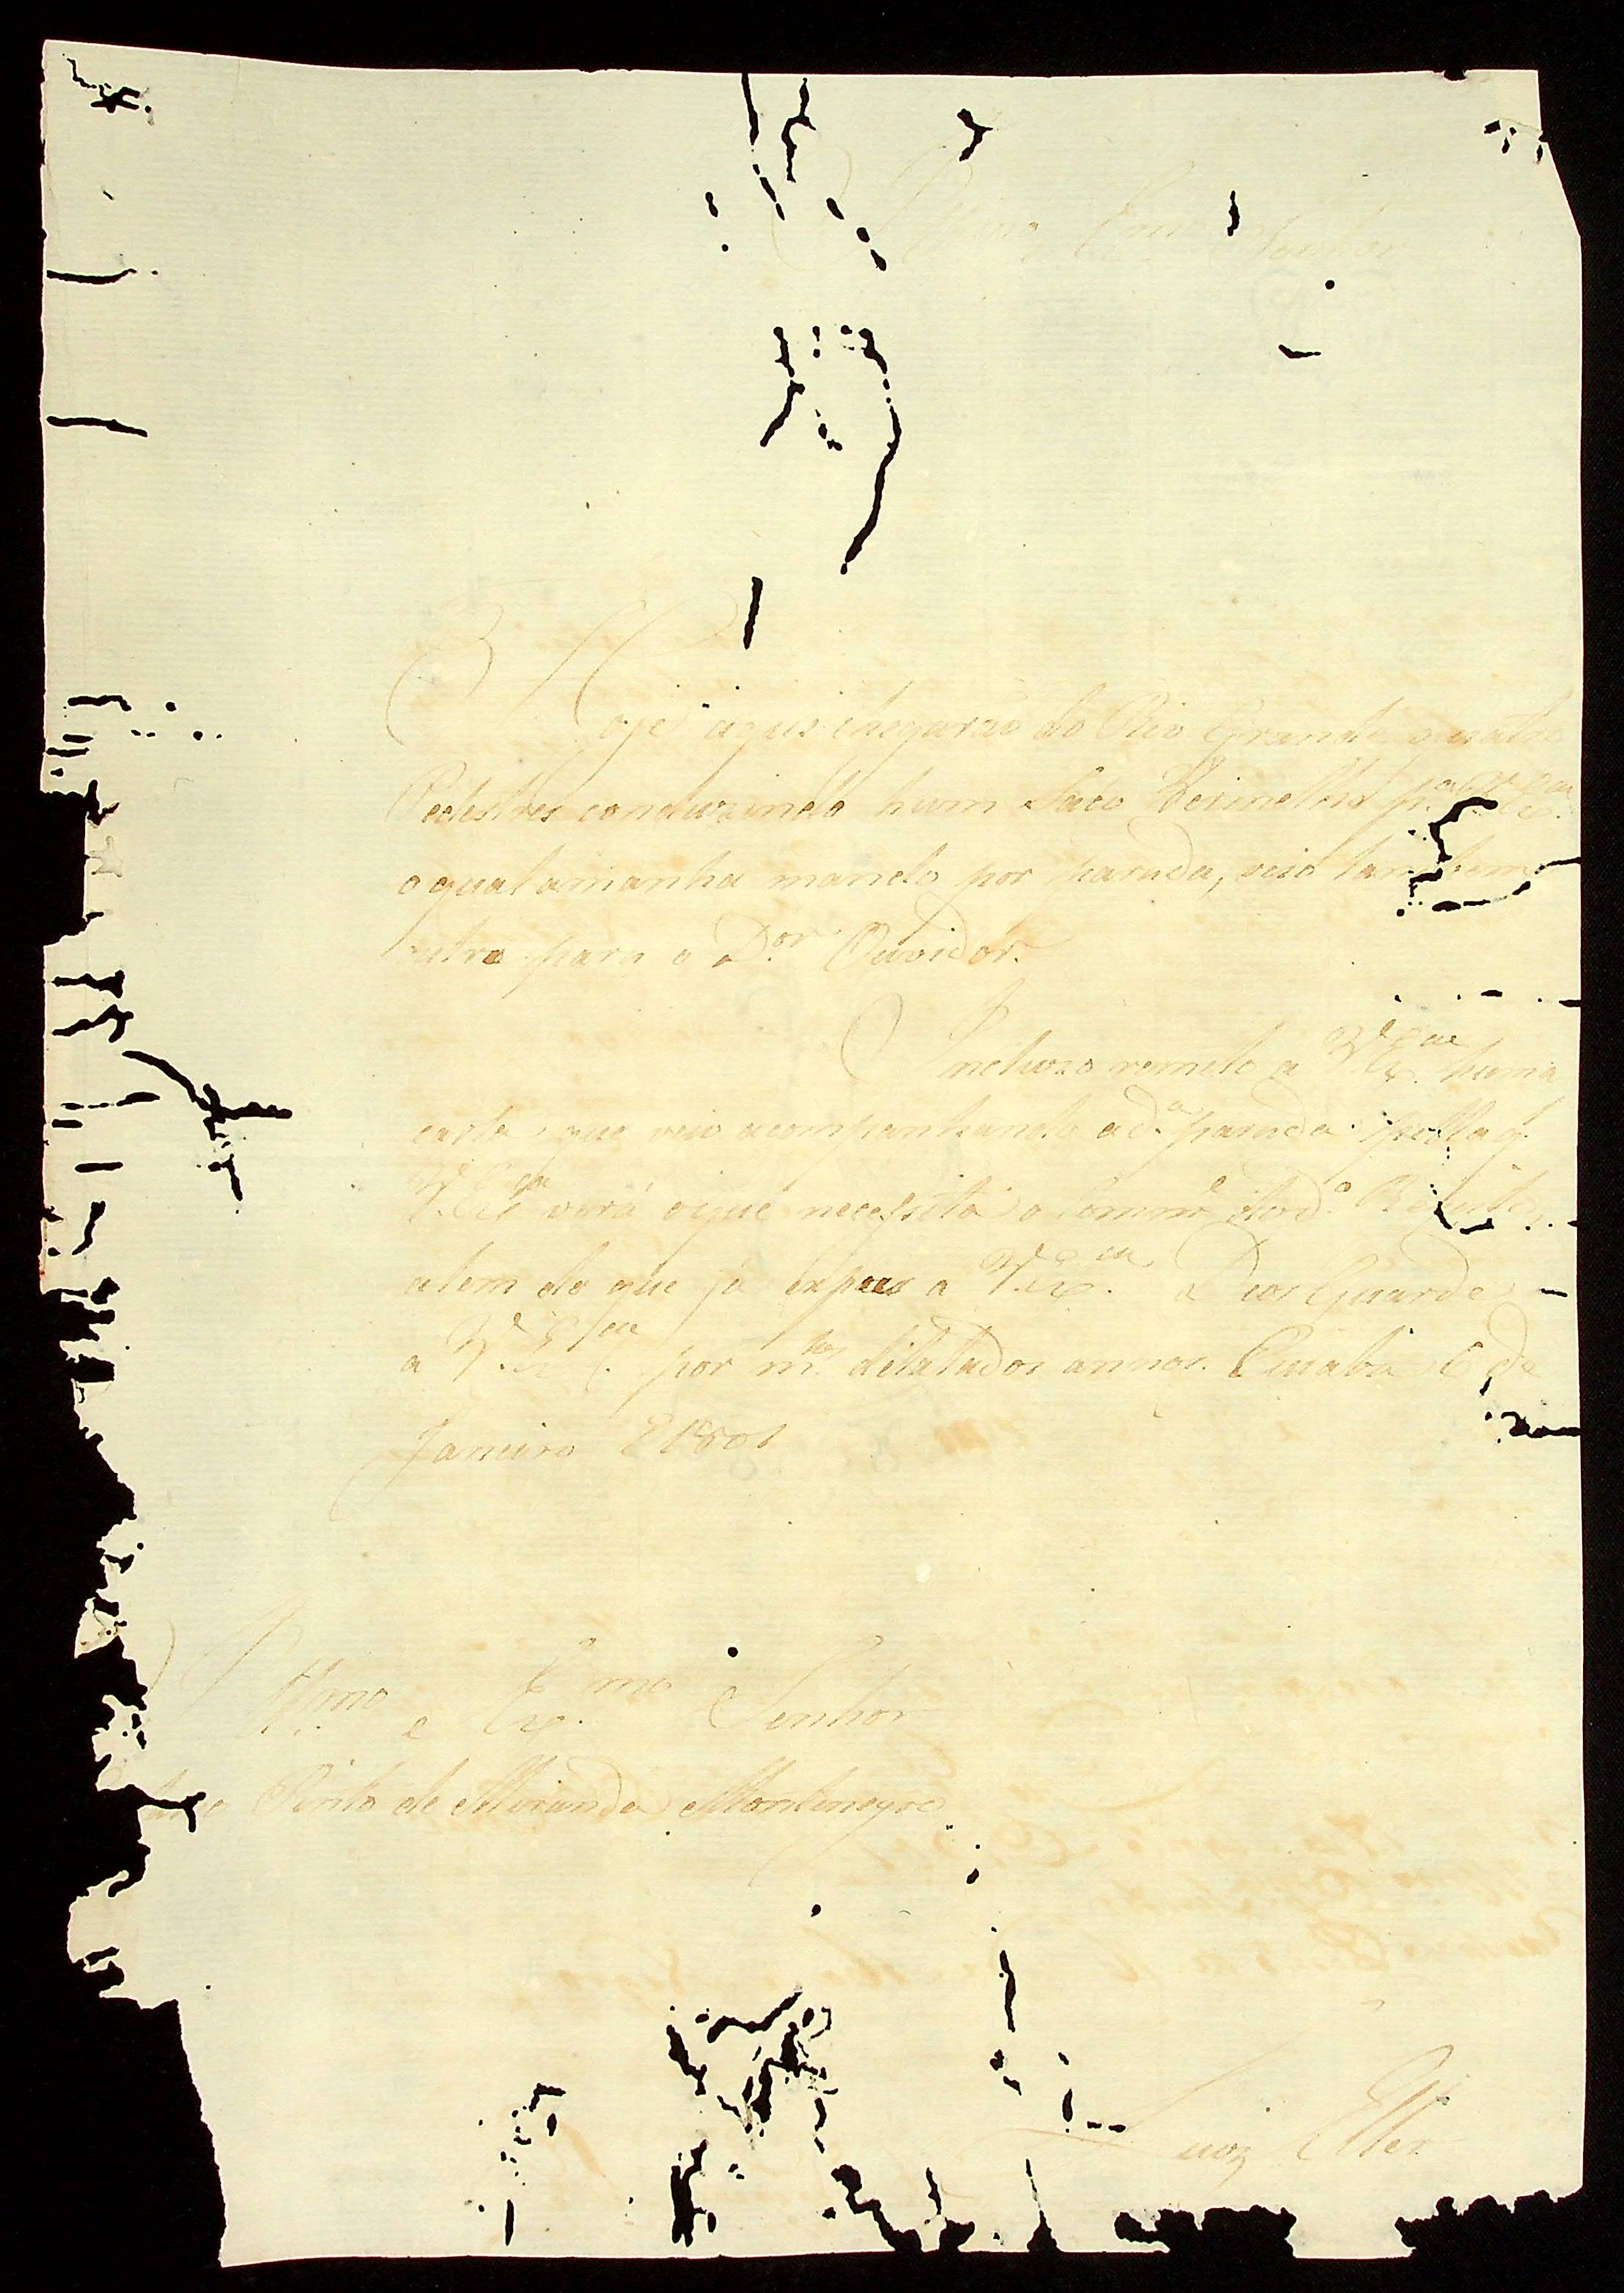 Illmo e Exmo Senhor
Hoje aqui chegarão do Rio Grande quatro
Pedestres conduzindo hum Saco Vermelho p.ª V. Ex.cia
o qual amanha mando por parada, veio tambem
outro para o D.or Ouvidor.
Incluzo remeto a V. Ex.cia huma
carta que veio acompanhando a d.ª parada pella q.
V. Ex.cia verá oque necessita o Comm.e do d.º
alem do que já expus a V. Ex.cia. Deos Guarde
a V. Ex.cia por m.tos dilatados annos. Cuiabá 6 de
Janeiro de 1801
Ill.mo e Ex.mo Senhor
Pinto de Miranda Montenegro
Luiz